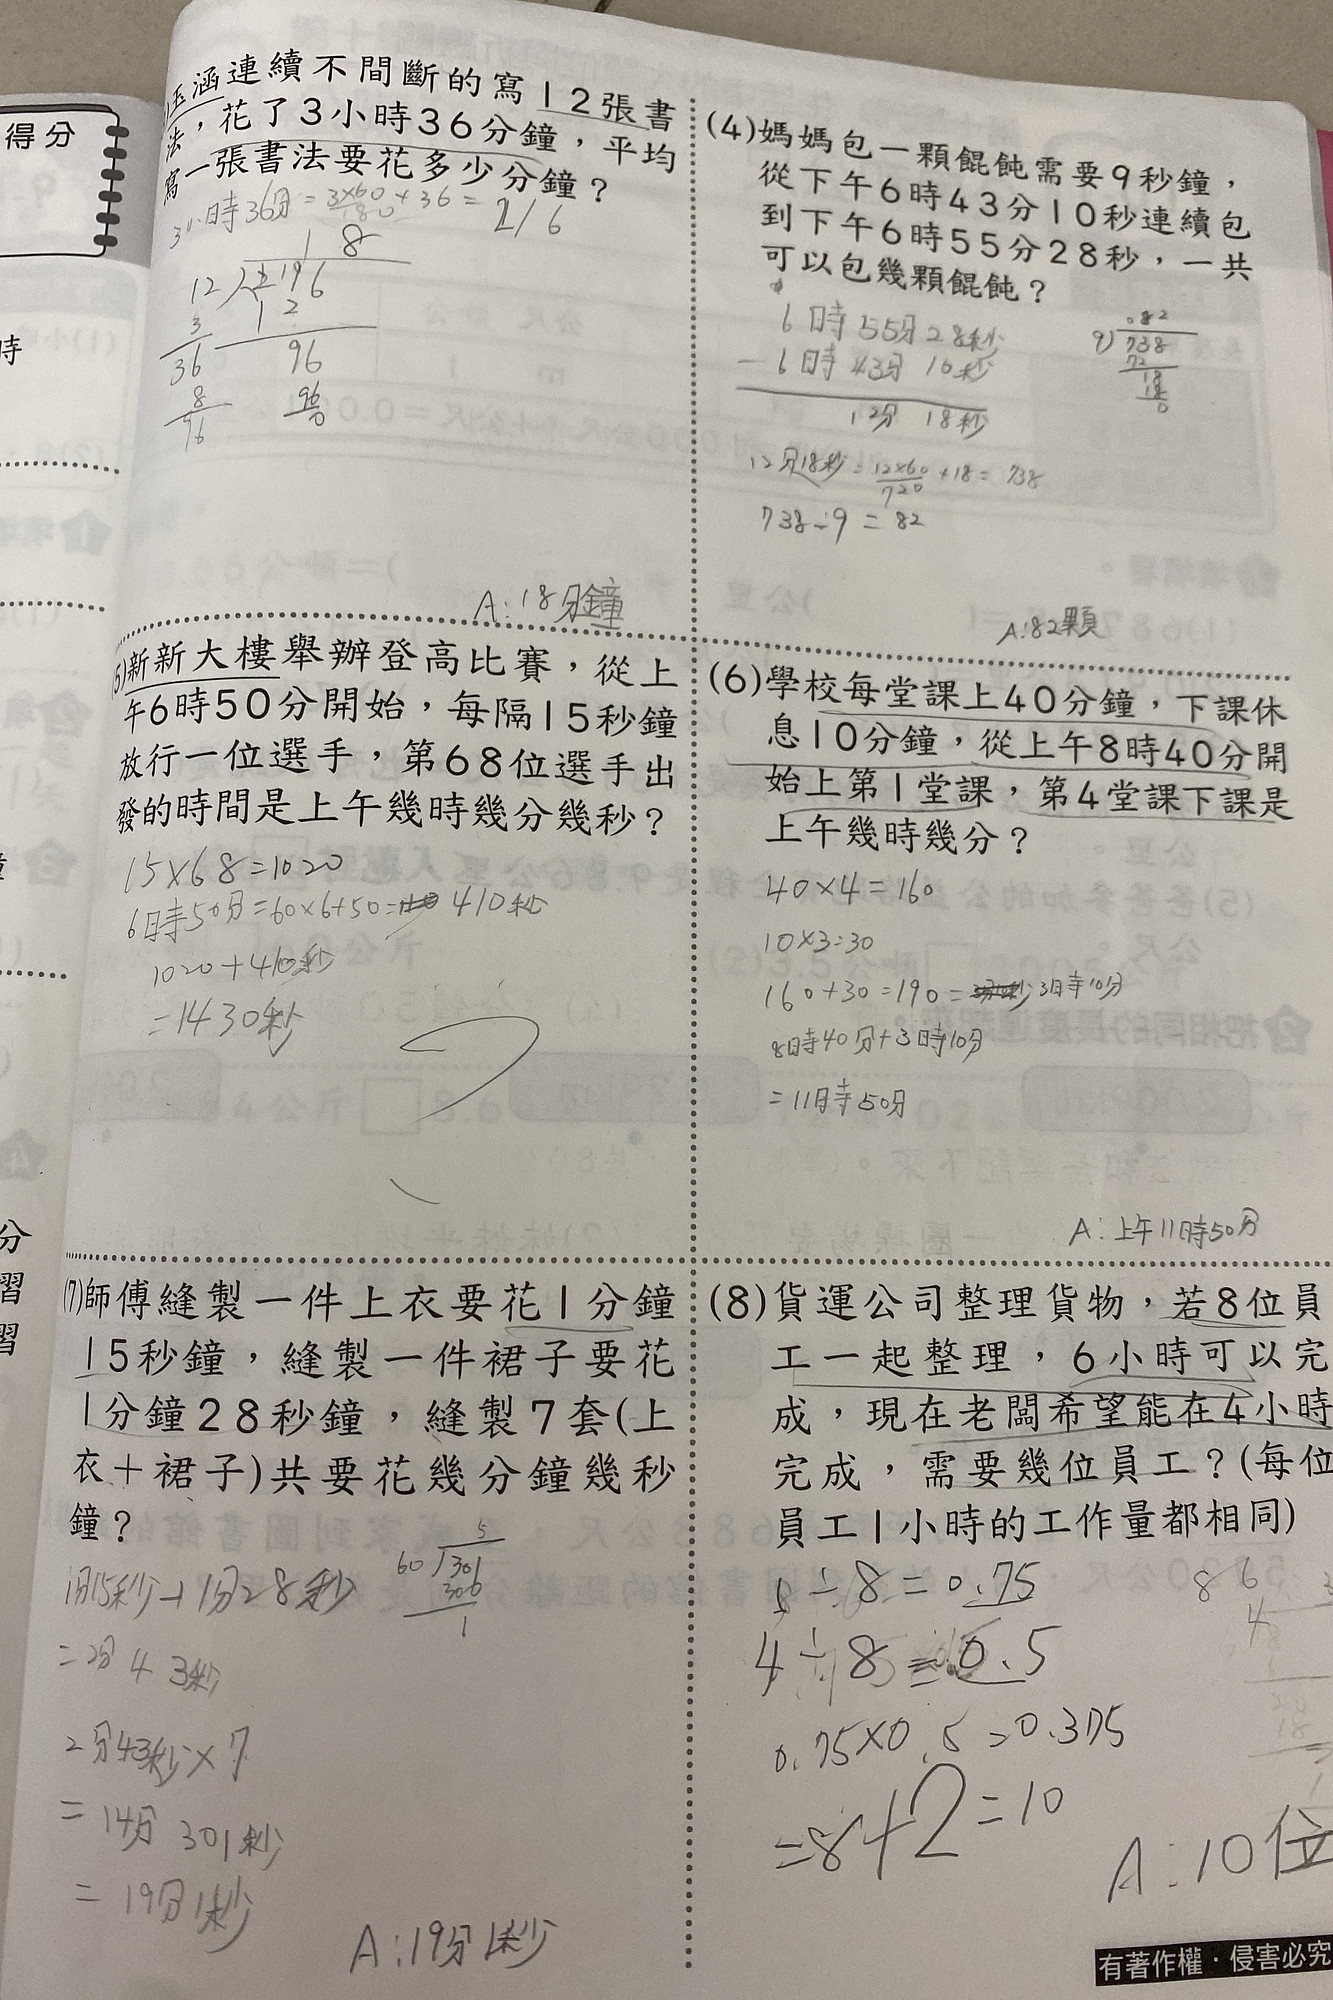 得分
時
分
習
習
玉涵連續不間斷的寫12張書
法，花了3小時36分鐘，平均
寫一張書法要花多少分鐘？
3小時36分=3×60+36=216
180
18
12
216
12
3
36
96
8
96
96
0
A:18分鐘
(4)媽媽包一顆餛飩需要9秒鐘，
從下午6時43分10秒連續包
到下午6時55分28秒，一共
可以包幾顆餛飩？
6時55分28秒
-6時43分10秒
12分18秒
082
9)738
72
18
18
0
12分18秒=12×60+18=738
720
738÷9=82
A:82顆
(5)新新大樓舉辦登高比賽，從上
午6時50分開始，每隔15秒鐘
放行一位選手，第68位選手出
發的時間是上午幾時幾分幾秒？
15×68=1020
6時50分=60×6+50=410秒
1020+410秒
=1430秒
(6)學校每堂課上40分鐘，下課休
息10分鐘，從上午8時40分開
始上第1堂課，第4堂課下課是
上午幾時幾分？
40×4=160
10×3=30
160+30=190=3時10分
8時40分+3時10分
=11時50分
A:上午11時50分
(7)師傅縫製一件上衣要花1分鐘
15秒鐘，縫製一件裙子要花
1分鐘28秒鐘，縫製7套(上
衣＋裙子)共要花幾分鐘幾秒
鐘？
1分15秒+1分28秒
=2分43秒
2分43秒×7
=14分301秒
=19分1秒
5
60)301
300
1
A:19分1秒
(8)貨運公司整理貨物，若8位員
工一起整理，6小時可以完
成，現在老闆希望能在4小時
完成，需要幾位員工？(每位
員工1小時的工作量都相同)
÷8=0.75
4÷8=0.5
0.75×0.5=0.375
=8+2=10
8 6
4
A:10位
有著作權·侵害必究